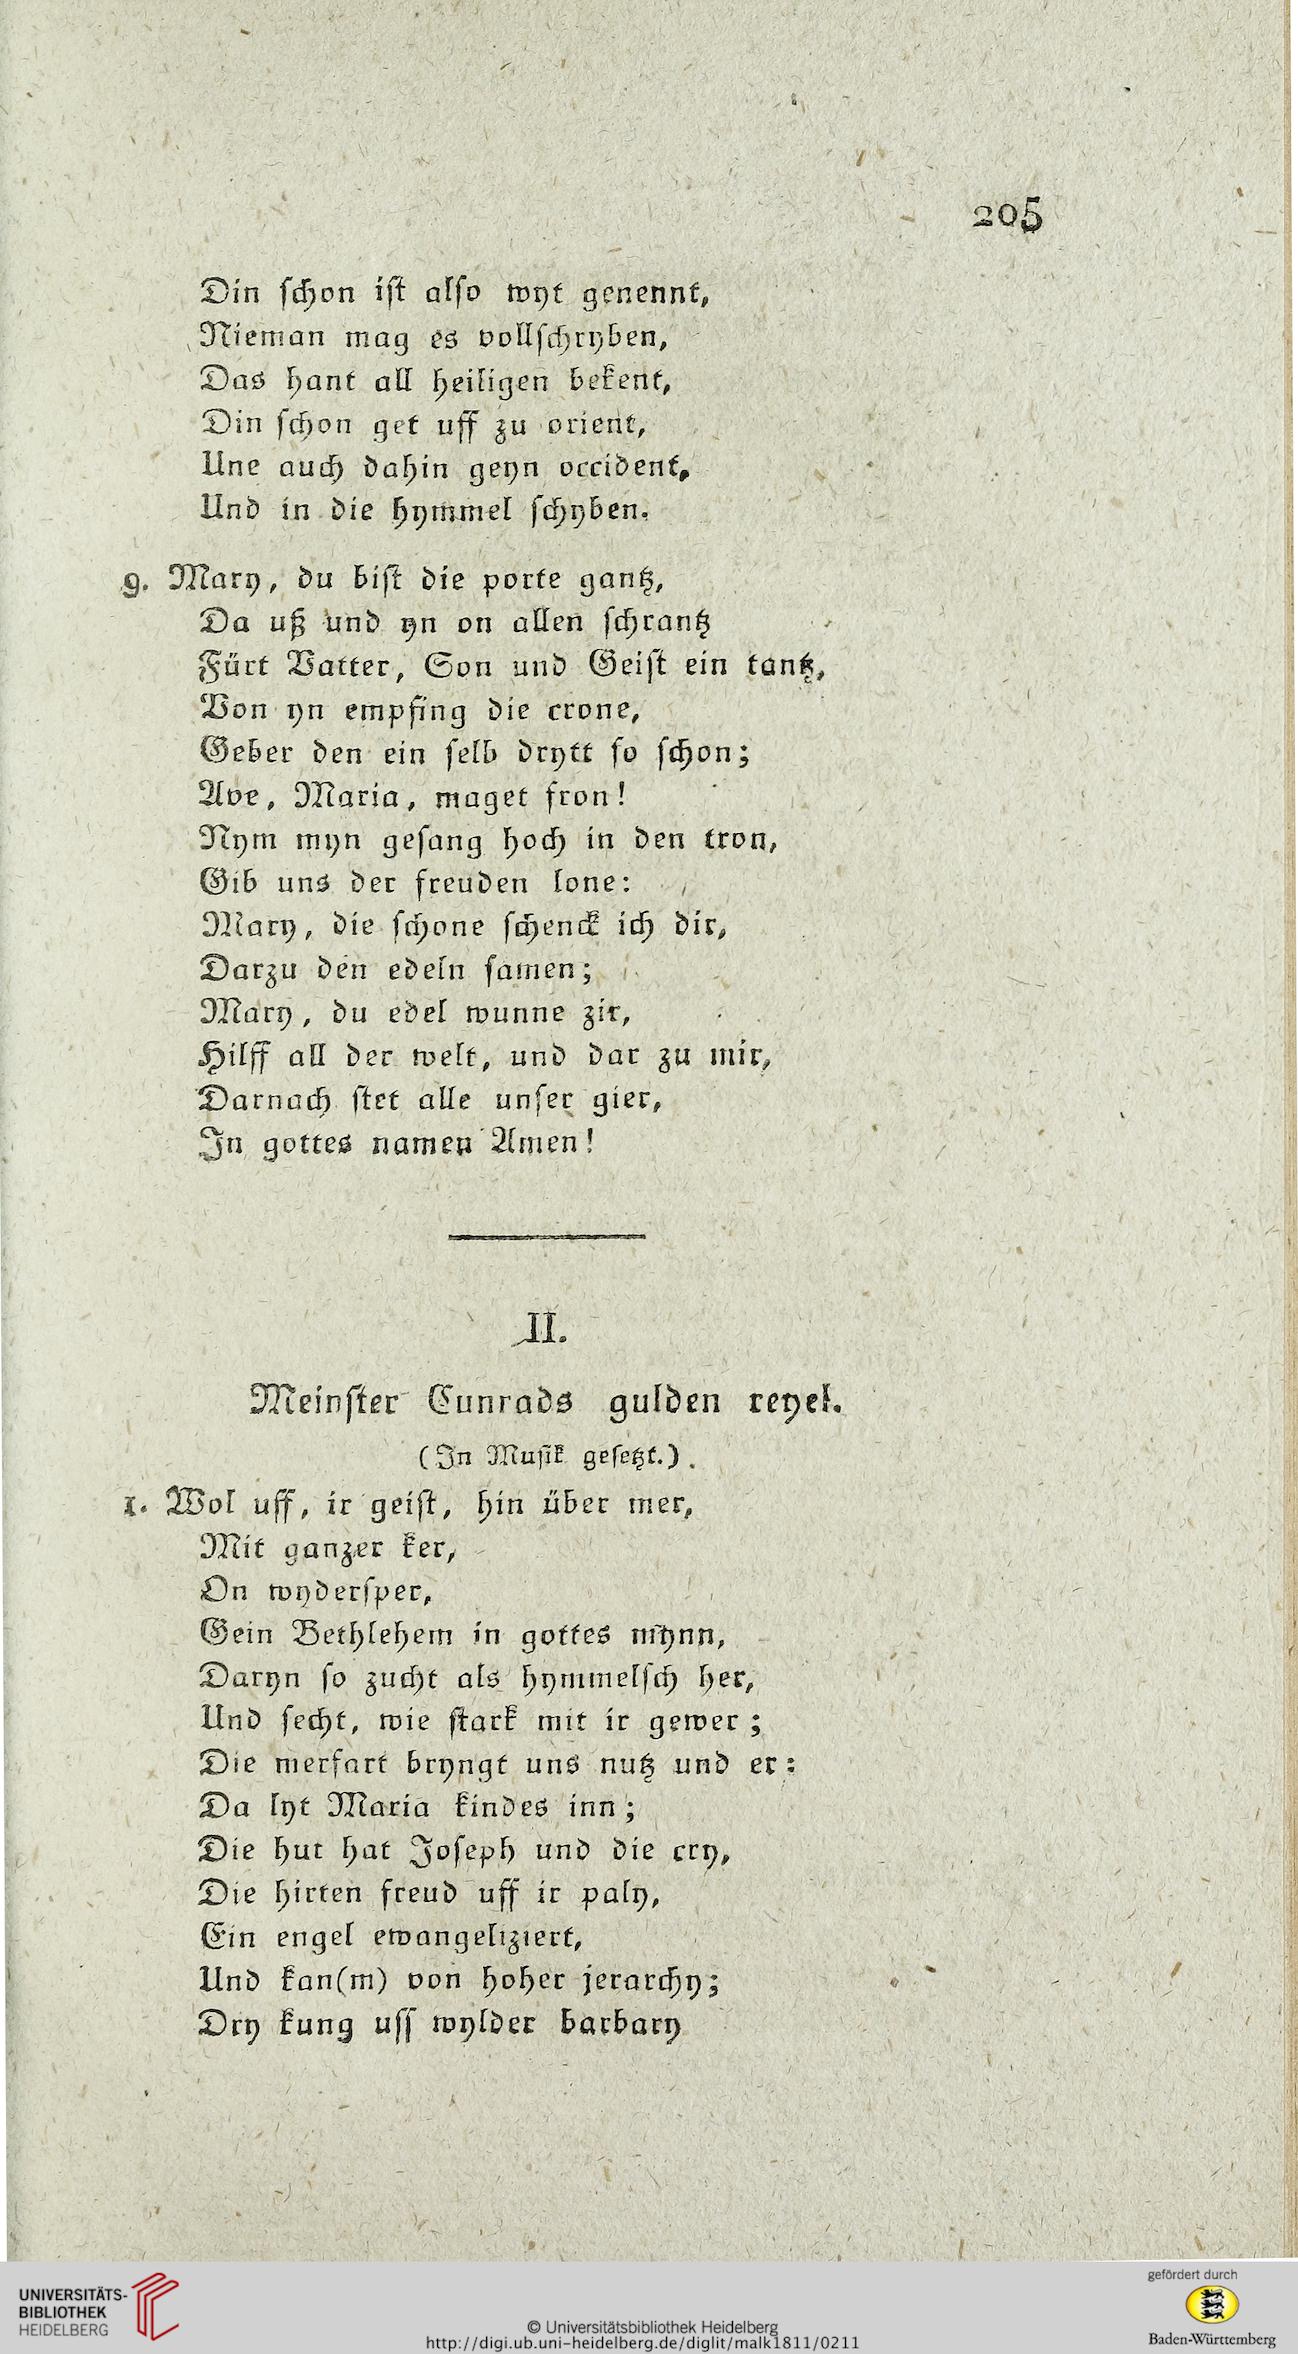 205
Din ſchon iſt alſo wyt genennt,
Nieman mag es vollſchryben,
Das hant all heiligen bekent,
Din ſchon get uff zu orient,
Une auch dahin geyn occident,
Und in die hymmel ſchyben.
9. Mary, du biſt die porte gantz,
Da uß und yn on allen ſchrantz
Fürt Vatter, Son und Geiſt ein tantz,
Von yn empfing die crone,
Geber den ein ſelb drytt ſo ſchon;
Ave, Maria, maget fron!
Nym myn geſang hoch in den tron,
Gib uns der freuden lone:
Mary, die ſchone ſchenck ich dir,
Darzu den edeln ſamen;
Mary, du edel wunne zir,
Hilff all der welt, und dar zu mir,
Darnach ſtet alle unſer gier,
In gottes namen Amen!
II.
Meinſter Cunrads gulden reyel.
(In Muſik geſetzt.).
1. Wol uff, ir geiſt, hin über mer,
Mit ganzer ker,
On wyderſper,
Gein Bethlehem in gottes mynn,
Daryn ſo zucht als hymmelſch her,
Und ſecht, wie ſtark mit ir gewer;
Die merfart bryngt uns nutz und er:
Da lyt Maria kindes inn;
Die hut hat Joſeph und die cry,
Die hirten freud uff ir paly,
Ein engel ewangeliziert,
Und kan(m) von hoher jerarchy;
Dry kung uſſ wylder barbary
UNIVERSITÄTS-
BIBLIOTHEK
HEIDELBERG
© Universitätsbibliothek Heidelberg
http://digi.ub.uni-heidelberg.de/diglit/malk1811/0211
gefördert durch
Baden-Württemberg